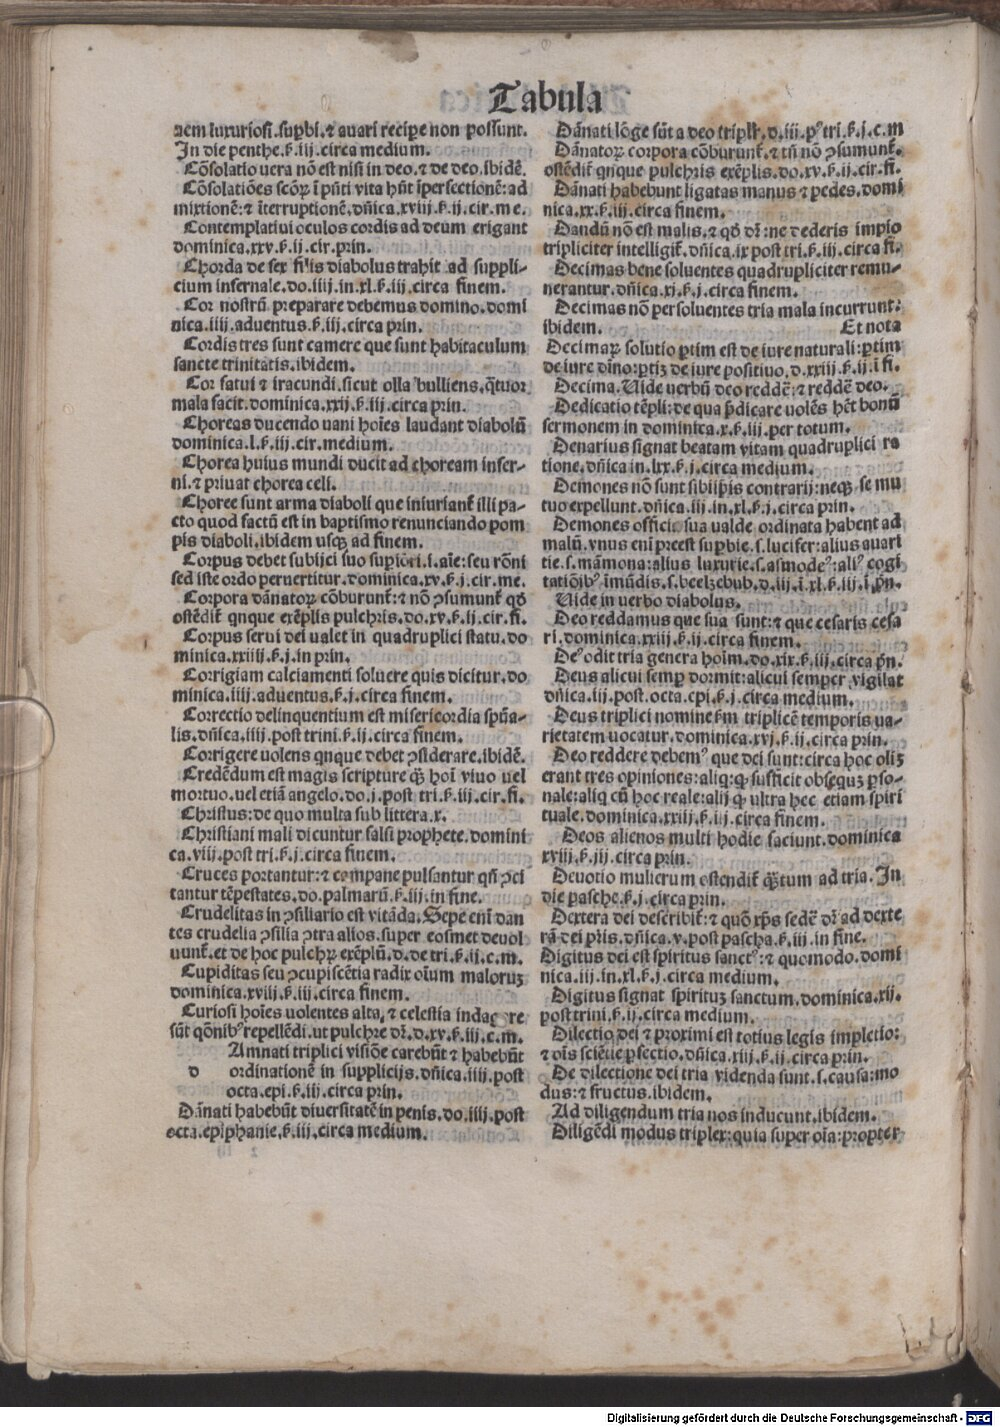 Tabula
nem luxuriosi.supbi.⁊ auari recipe non possunt.
In die penthe.ß.iij.circa medium.
Cõsolatio uera nõ est nisi in deo.⁊ de deo.ibidẽ.
Cõsolatiões scõꝝ ĩ pñti vita hñt ĩperfectionẽ:ad
mixtionẽ:⁊ ĩterruptionẽ.dñica.xviij.ß.ij.cir.me.
Contemplatiui oculos cordis ad deum erigant
dominica.xxv.ß.ij.cir.prin.
Chorda de sex filis diabolus trahit ad suppli-
cium infernale.do.iiij.in.xl.ß.iij.circa finem.
Cor nostrũ preparare debemus domino.domi
nica.iiij.aduentus.ß.iij.circa prin.
Cordis tres sunt camere que sunt habitaculum
sancte trinitatis.ibidem.
Cor fatui ⁊ iracundi.sicut olla bulliens.q̃tuor
mala facit.dominica.xxij.ß.iij.circa prin.
Choreas ducendo uani hoĩes laudant diabolũ
dominica.l.ß.iij.cir.medium.
Chorea huius mundi ducit ad choream infer-
ni.⁊ priuat chorea celi.
Choree sunt arma diaboli que iniuriant̃ illi pa-
cto quod factũ est in baptismo renunciando pom
pis diaboli.ibidem usqꝫ ad finem.
Corpus debet subijci suo supiori.i.aĩe:seu rõni
sed iste ordo peruertitur.dominica.xv.ß.j.cir.me.
Corpora dãnatoꝝ cõburunt̃:⁊ nõ ꝯsumunt̃ qđ
ostẽdit̃ qnque exẽplis pulchris.do.xv.ß.ij.cir.fi.
Corpus serui dei ualet in quadruplici statu.do
minica.xxiiij.ß.j.in prin.
Corrigiam calciamenti soluere quis dicitur.do
minica.iiij.aduentus.ß.j.circa finem.
Correctio delinquentium est misericordia spũa-
lis.dñica.iiij.post trini.ß.ij.circa finem.
Corrigere uolens qnque debet ꝯsiderare.ibidẽ.
Credẽdum est magis scripture qꝫ hoĩ viuo uel
mortuo.uel etiã angelo.do.j.post tri.ß.iij.cir.fi.
Christus:de quo multa sub littera.x.
Christiani mali dicuntur falsi prophete.domini
ca.viij.post tri.ß.j.circa finem.
Cruces portantur:⁊ campane pulsantur qñ ꝯci
tantur tẽpestates.do.palmarũ.ß.iij.in fine.
Crudelitas in ꝯsiliario est vitãda.Sepe enĩ dan
tes crudelia ꝯsilia ꝯtra alios.super eosmet deuol
uunt̃.et de hoc pulchꝝ exẽplũ.d.de tri.ß.ij.c.m.
Cupiditas seu ꝯcupiscẽtia radix oĩum maloruꝫ
dominica.xviij.ß.iij.circa finem.
Curiosi hoĩes uolentes alta ⁊ celestia indagare
sũt qõnibꝰ repellẽdi.ut pulchre dr̃.d.xv.ß.iij.c.m.
d Amnati triplici visiõe carebũt ⁊ habebũt
ordinationẽ in supplicijs.dñica.iiij.post
octa.epi.ß.iij.circa prin.
Dãnati habebũt diuersitatẽ in penis.do.iiij.post
octa.epiphanie.ß.iij.circa medium.
Dãnati lõge sũt a deo triplr̃.d.iii.pꝰ tri.ß.j.c.m
Dãnatoꝝ corpora cõburunt̃.⁊ tñ nõ ꝯsumunt̃.
ostẽdit̃ qnque pulchris exẽplis.do.xv.ß.ij.cir.fi.
Dãnati habebunt ligatas manus ⁊ pedes.domi
nica.xx.ß.iij.circa finem.
Dandũ nõ est malis.⁊ qđ dr̃:ne dederis impio
tripliciter intelligit̃.dñica.ix post tri.ß.iij.circa fi.
Decimas bene soluentes quadrupliciter remu-
nerantur.dñica.xj.ß.j.circa finem.
Decimas nõ persoluentes tria mala incurrunt:
ibidem. Et nota
Decimaꝝ solutio ptim est de iure naturali:ptim
de iure diño:ptiꝫ de iure positiuo.d.xxiij.ß.ij.ĩ fi.
Decima.Uide uerbũ deo reddẽ:⁊ reddẽ deo.
Dedicatio tẽpli:de qua p̃dicare uolẽs hẽt bonũ
sermonem in dominica.x.ß.iij.per totum.
Denarius signat beatam vitam quadruplici ra
tione.dñica in.lxx.ß.j.circa medium.
Demones nõ sunt sibijp̃is contrarij:neqꝫ se mu
tuo expellunt.dñica.iij.in.xl.ß.j.circa prin.
Demones officia sua ualde ordinata habent ad
malũ.vnus enĩ preest supbie.s.lucifer:alius auari
tie.s.mãmona:alius luxurie.s.asmodeꝰ:aliꝰ cogi
tatiõibꝰ imũdis.s.beelzebub.d.iij.ĩ.xl.ß.iij.ĩ p̃n.
Uide in uerbo diabolus.
Deo reddamus que sua sunt:⁊ que cesaris cesa
ri.dominica.xxiij.ß.ij.circa finem.
Deꝰ odit tria genera hoĩm.do.xix.ß.iij.circa p̃n.
Deus alicui semp dormit:alicui semper vigilat
dñica.iij.post.octa.epi.ß.j.circa medium.
Deus triplici nomine ßm triplicẽ temporis ua-
rietatem uocatur.dominica.xvj.ß.ij.circa prin.
Deo reddere debemꝰ que dei sunt:circa hoc oliꝫ
erant tres opiniones:aliq:ꝙ sufficit obsequꝫ pso-
nale:aliq cũ hoc reale:alij ꝙ ultra hec etiam spiri
tuale.dominica.xxiij.ß.iij.circa finem.
Deos alienos multi hodie faciunt.dominica
xviij.ß.iij.circa prin.
Deuotio mulierum ostendit̃ q̃tum ad tria.In
die pasche.ß.j.circa prin.
Dextera dei describit̃:⁊ quõ xp̃s sedẽ dr̃ ad dexte
rã dei pr̃is.dñica.v.post pascha.ß.iii.in fine.
Digitus dei est spiritus sanctꝰ:⁊ quomodo.domi
nica.iij.in.xl.ß.j.circa medium.
Digitus signat spirituꝫ sanctum.dominica.xij.
post trini.ß.ij.circa medium.
Dilectio dei ⁊ proximi est totius legis impletio:
⁊ oĩs sciẽtie pfectio.dñica.xiij.ß.ij.circa prin.
De dilectione dei tria videnda sunt.s.causa:mo
dus:⁊ fructus.ibidem.
Ad diligendum tria nos inducunt.ibidem.
Diligẽdi modus triplex:quia super oĩa:propter
Digitalisierung gefördert durch die Deutsche Forschungsgemeinschaft - DFG